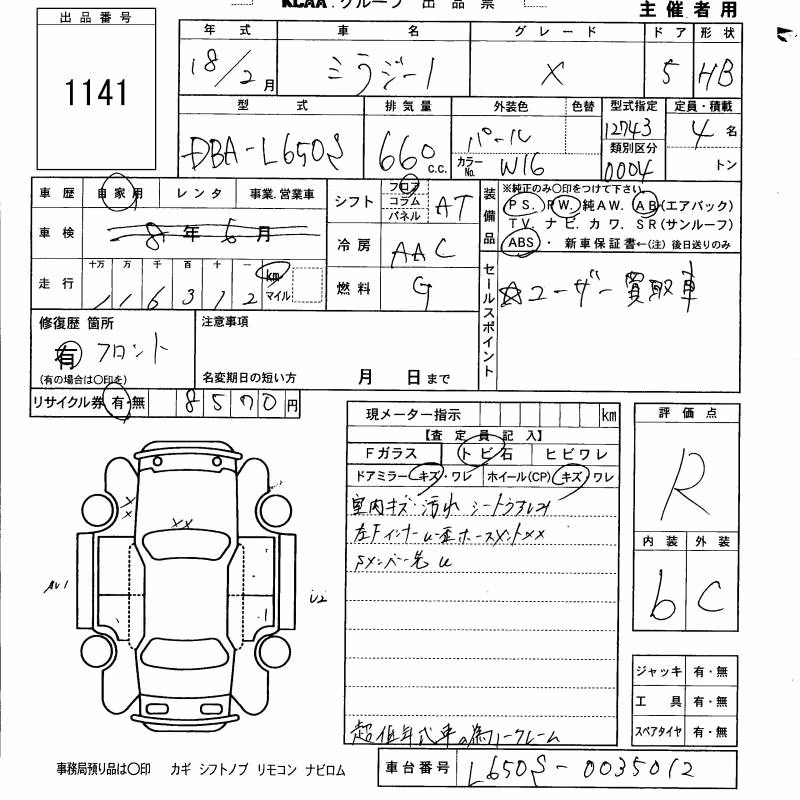 KCAA グループ 出品票
主催者用
出品番号
1141
年式 車名 グレード ドア 形状
18/2月 ミラジーノ X 5 HB
型式 排気量 外装色 色替 型式指定 定員・積載
DBA-L650S 660 C.C. パール 12743 4名
類別区分
カラーNo. W16 0004 トン
車歴 自家用 レンタ 事業.営業車
シフト フロア コラム パネル AT
装備品 ※純正のみ〇印をつけて下さい。
P S. P W. 純AW. A B(エアバック)
T V. ナ ビ. カ ワ. S R(サンルーフ)
ABS ・ 新車保証書←(注) 後日送りのみ
車検 8年6月
冷房 AAC
走行 十万 万 千 百 十 一
116312 km マイル
燃料 G
セールスポイント
☆ユーザー買取車
修復歴 箇所
有 フロント
(有の場合は〇印を)
注意事項
名変期日の短い方 月 日まで
リサイクル券 有・無 8570円
現メーター指示 km
【査定員記入】
Fガラス トビ石 ヒビワレ
ドアミラー キズ・ワレ ホイール(CP) キズ・ワレ
室内キズ・汚れ
左Fインナー
先U
超低年式車の為ノークレーム
評価点
R
内装 外装
b C
XX
U2
ジャッキ 有・無
工具 有・無
スペアタイヤ 有・無
事務局預り品は〇印 カギ シフトノブ リモコン ナビロム
車台番号 L650S-0035012